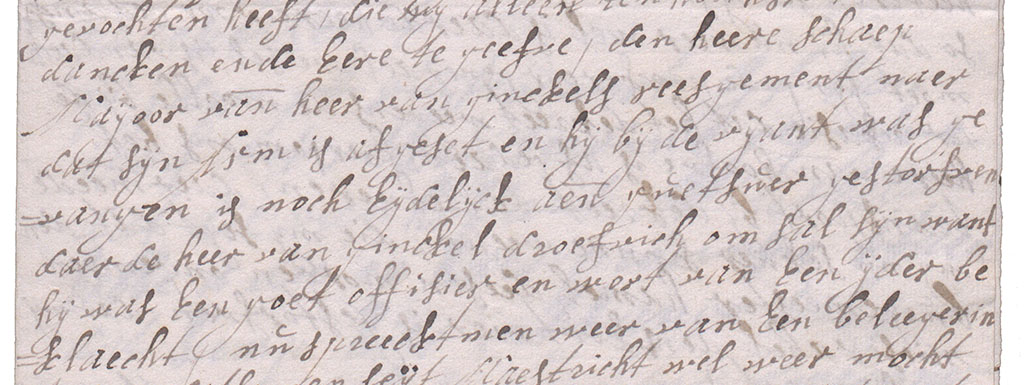 gevochten heeft, die wy alleen
dancken ende eere te geefve, den heere schaep
Mayoor van heer van ginckels reesgement naer
dat sijn arm is afgeset en hij bij de vyant was ge
=vangen is noch Eydelyck aen quetsuer gestorfven
daer de heer van ginckel droefvich om sal sijn want
hij was Een goet offisier en wert van Een yder be
=klaecht, nu spreeckt men weer van Een beleegerin
seyt Maestricht wel weer mocht